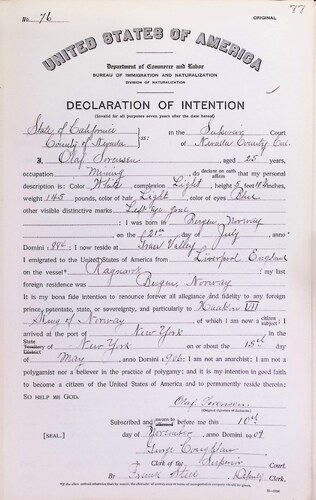 77
No. 76 ORIGINAL
UNITED STATES OF AMERICA
Department of Commerce and Labor
BUREAU OF IMMIGRATION AND NATURALIZATION
DIVISION OF NATURALIZATION
DECLARATION OF INTENTION
(Invalid for all purposes seven years after the date hereof)
State of California
County of Nevada ss: In the Superior Court
of Nevada County Cal.
I, Olaf Sorensen, aged 25 years,
occupation Mining, do declare on oath affirm that my personal
description is: Color White, complexion Light, height 5 feet inches,
weight 145 pounds, color of hair Light, color of eyes Blue
other visible distinctive marks Left eye gone
I was born in Bergen, Norway
on the 21st day of July, anno
Domini 1884; I now reside at Grass Valley
I emigrated to the United States of America from Liverpool England
on the vessel ; my last
foreign residence was Bergen, Norway
It is my bona fide intention to renounce forever all allegiance and fidelity to any foreign
prince, potentate, state, or sovereignty, and particularly to Haakon VII
King of Norway, of which I am now a citizen subject; I
arrived at the port of New York, in the
State Territory District of New York on or about the 15th day
of May, anno Domini 1906; I am not an anarchist; I am not a
polygamist nor a believer in the practice of polygamy; and it is my intention in good faith
to become a citizen of the United States of America and to permanently reside therein:
SO HELP ME GOD.
Olaf Sorensen
(Original signature of declarant)
Subscribed and sworn to affirmed before me this 10th
[SEAL.] day of November, anno Domini 1909
Coughlan
Clerk of the Superior Court.
By Frank Steel, Deputy Clerk.